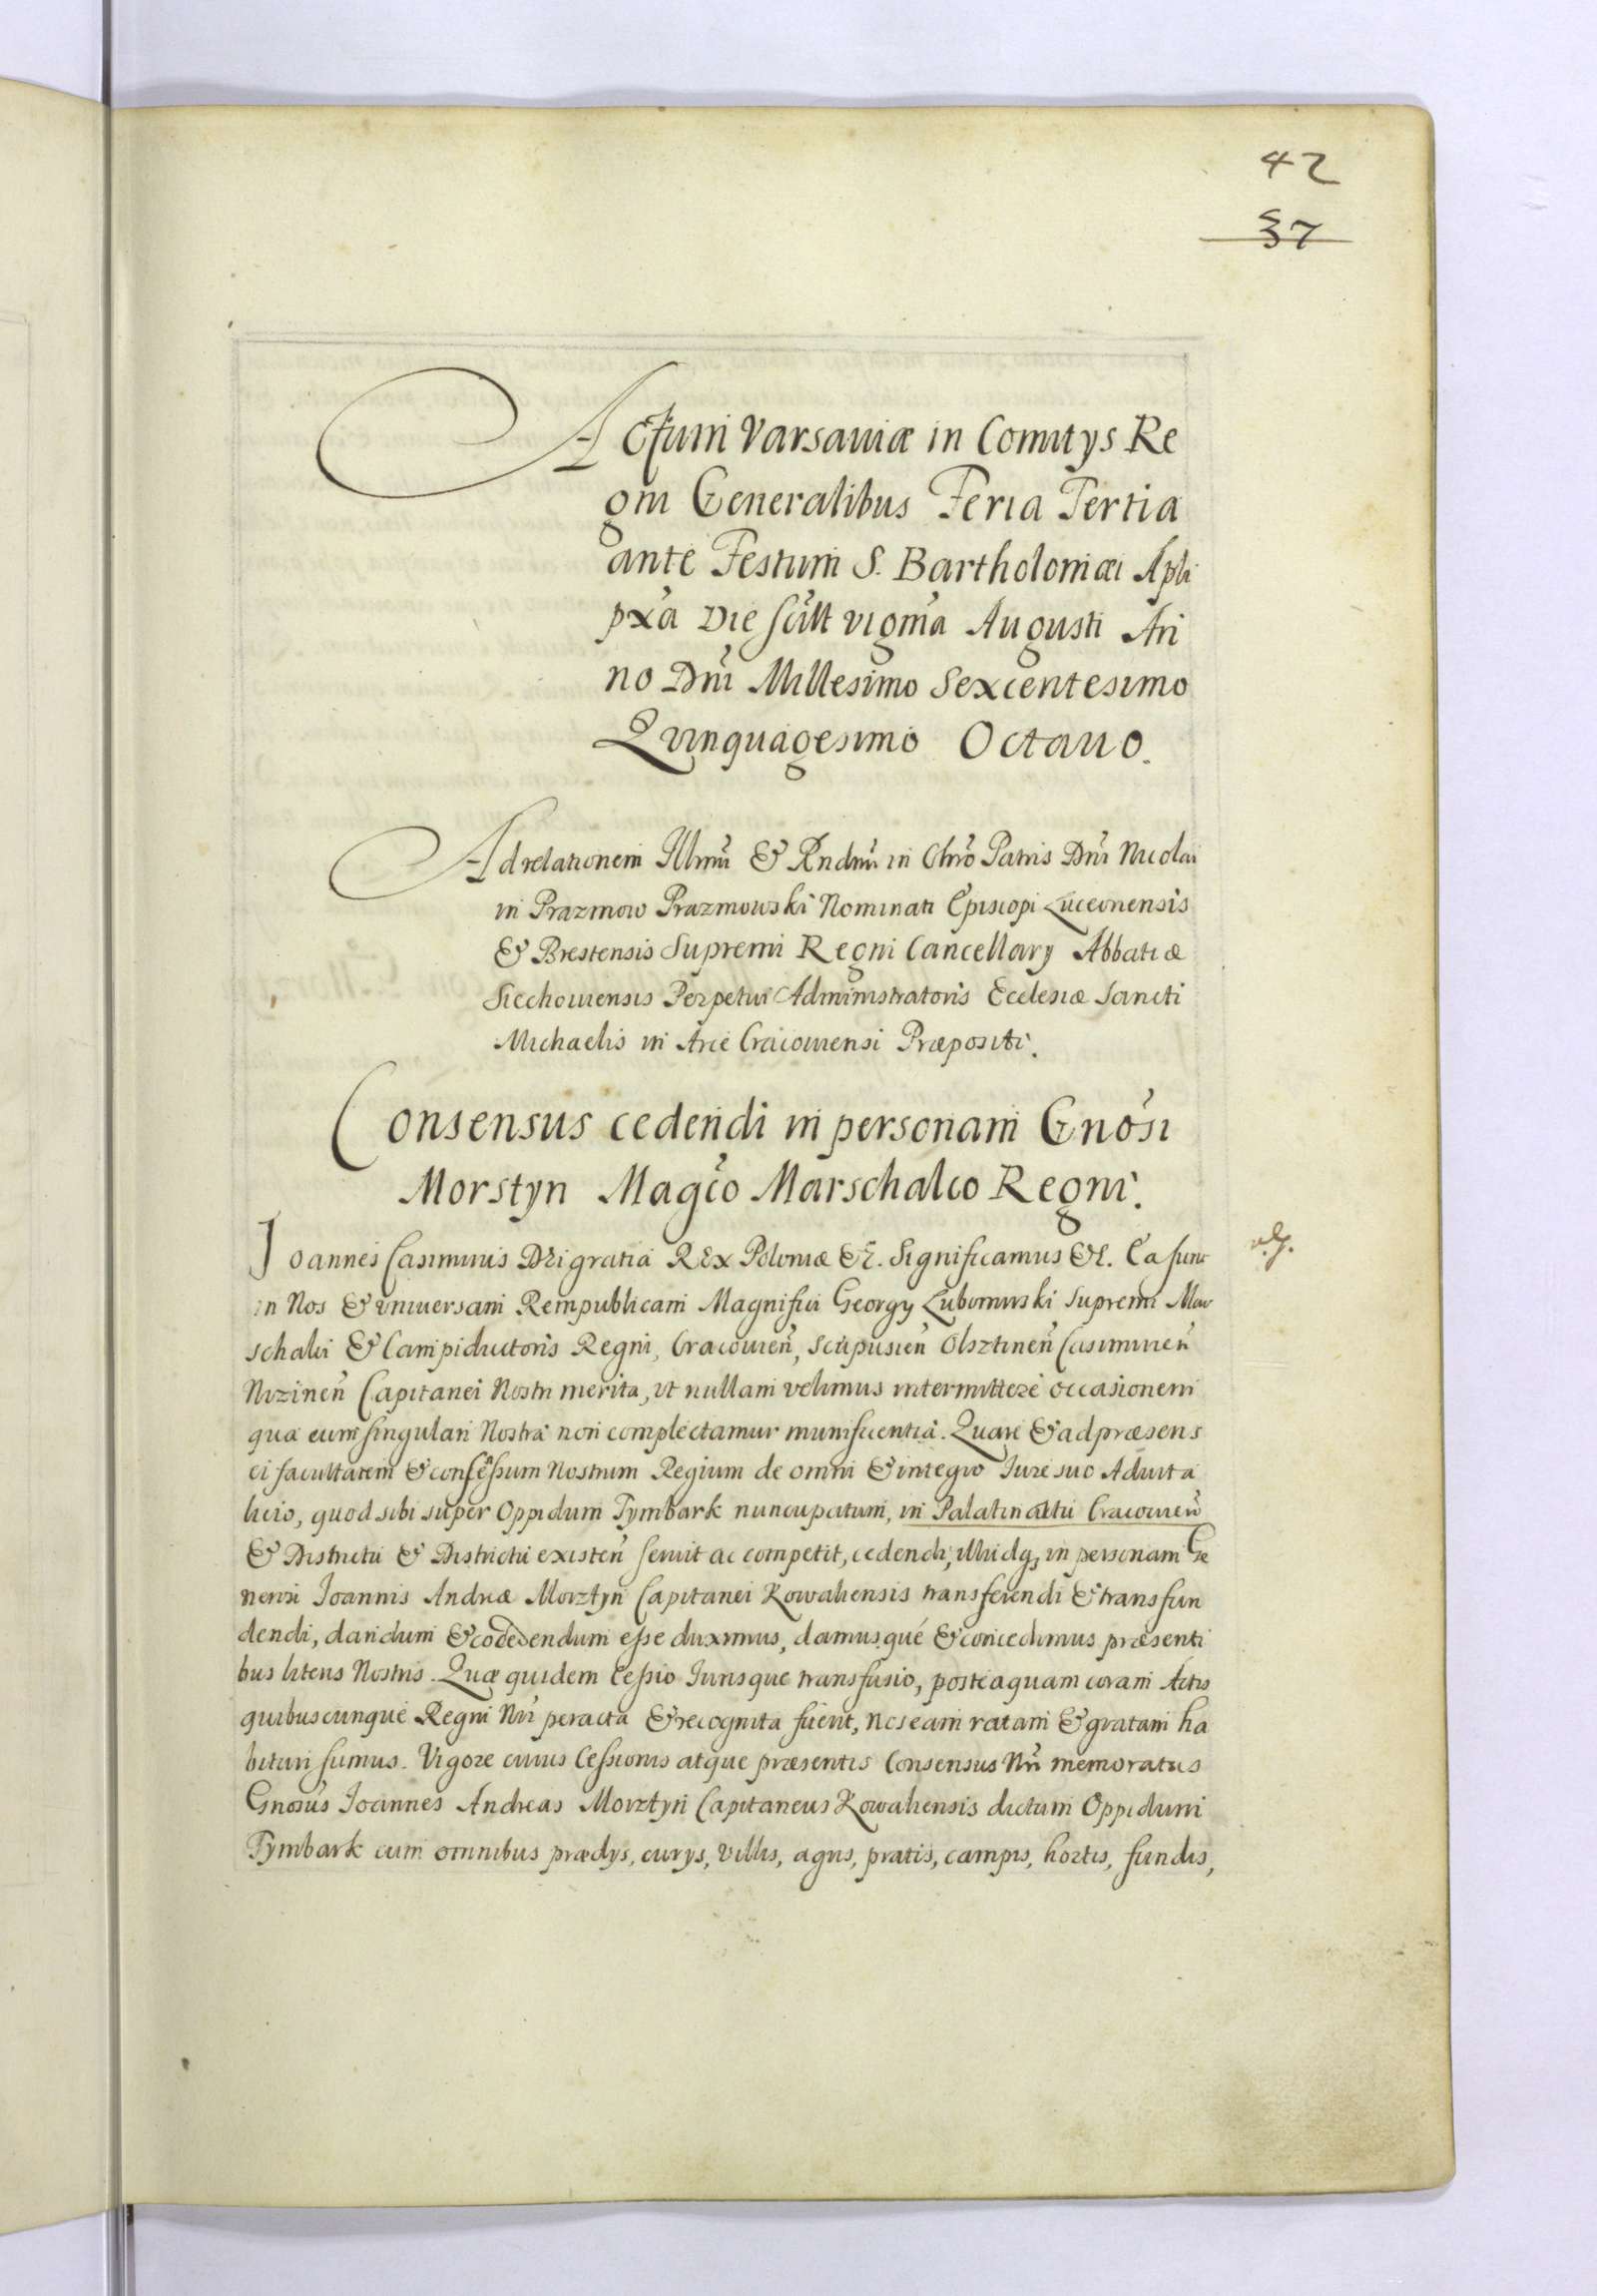 42
37
Actum Varsauiæ in Comitys Re
gni Generalibus Feria Tertia
ante Festum S. Bartholomæi Apli
pxã Die scilt vigmã Augusti An
no Dni Millesimo Sexcentesimo
Quinquagesimo Octauo.
Ad relationem Illmi & Rndmi in Chro Patris Dni Nicolai
in Prazmow Prazmowski Nominati Episcopi Luceonensis
& Brestensis Supremi Regni Cancellary Abbatiæ
Siecchouiensis Perpetui Administratoris Ecclesiæ Sancti
Michaelis in Arce Cracouiensi Præpositi.
Consensus cedendi in personam Gnosi
Morstyn Magco Marschalco Regni.
Ioannes Casimirus Dei gratia REx Poloniæ &c. Significamus &c. Ea sunt
in Nos & vniuersam Rempublicam Magnifici Georgy Lubomirski Supremi Mar
schalci & Campiductoris Regni, Cracouien, Scepusien Olsztinen Casimirien
Nizinen Capitanei Nostri merita, vt nullam velimus intermittere occasionem
qua eum singulari Nostra non complectamur munificentia. Quare & ad præsens
ei facultatem & consensum Nostrum Regium de omni & integro Iure suo Aduita
licio, quod sibi super Oppidum Tymbark nuncupatum, in Palatinattu Cracouien
& Districtu & Districtu existen seruit ac competit, cedendi, illudq3 in personam Ge
nerosi Ioannis Andreæ Morztyn Capitanei Kowaliensis transferendi & transfun
dendi, dandum & concedendum esse duximus, damusque & concedimus præsenti
bus literis Nostris. Quæ quidem Cessio Iurisque transfusio, posteaquam coram Actis
quibuscunque Regni Nri peracta & recognita fuerit, Nos eam ratam & gratam ha
bituri sumus. Vigore cuius Cessionis atque præsentis Consensus Nri memoratus
Gnosus Ioannes Andreas Morztyn Capitaneus Kowaliensis dictum Oppidum
Tymbark cum omnibus prædys, curys, villis, agris, pratis, campis, hortis, fundis,